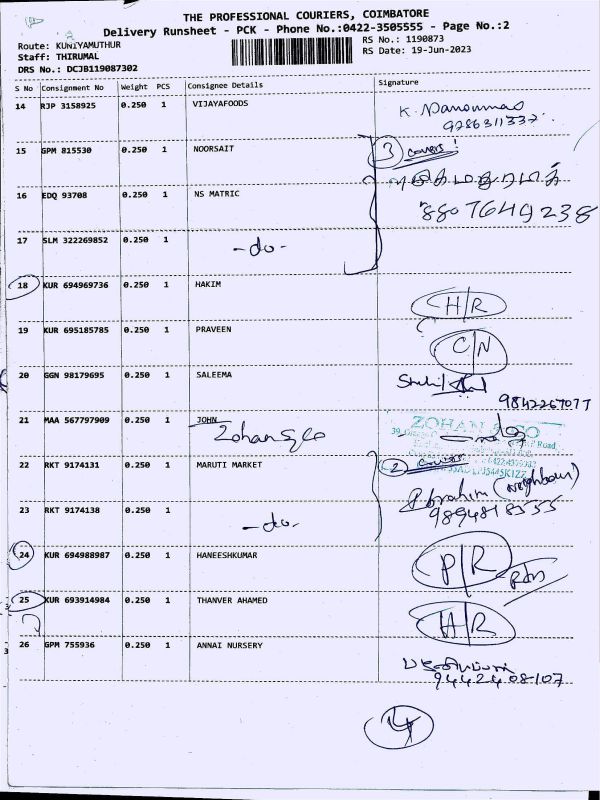 THE PROFESSIONAL COURIERS, COIMBATORE
Delivery Runsheet - PCK - Phone No.:0422-3505555 - Page No.:2
Route: KUNIYAMUTHUR
RS No.: 1190873
Staff: THIRUMAL
RS Date: 19-Jun-2023
DRS No.: DCJB119087302
S No Consignment No Weight PCS Consignee Details Signature
14 RJP 3158925 0.250 1 VIJAYAFOODS
K.
9786311337
15 GPM 815530 0.250 1 NOORSAIT
3 covers!
16 EDQ 93708 0.250 1 NS MATRIC
8807649238
17 SLM 322269852 0.250 1 -do-
18 KUR 694969736 0.250 1 HAKIM
H/R
19 KUR 695185785 0.250 1 PRAVEEN
C/N
20 GGN 98179695 0.250 1 SALEEMA
9842267077
21 MAA 567797909 0.250 1 JOHN
Zohan &Co
ZOHAN & CO
22 RKT 9174131 0.250 1 MARUTI MARKET
2 covers
Ibrahim (Neighbour)
9894818555
23 RKT 9174138 0.250 1 -do-
24 KUR 694988987 0.250 1 HANEESHKUMAR
P/R
25 KUR 693914984 0.250 1 THANVER AHAMED
H/R
26 GPM 755936 0.250 1 ANNAI NURSERY
9442408107
4